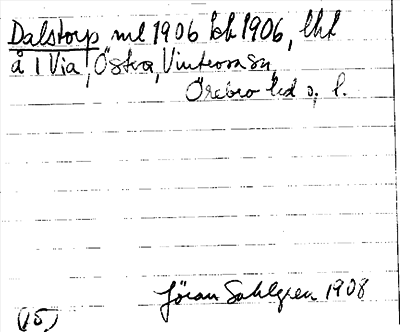 Dalstorp ml 1906 bh 1906, lhl
å 1 Via, Östra, Vintrosa sn,
Örebro hd o. l.
Jöran Sahlgren 1908
(15)